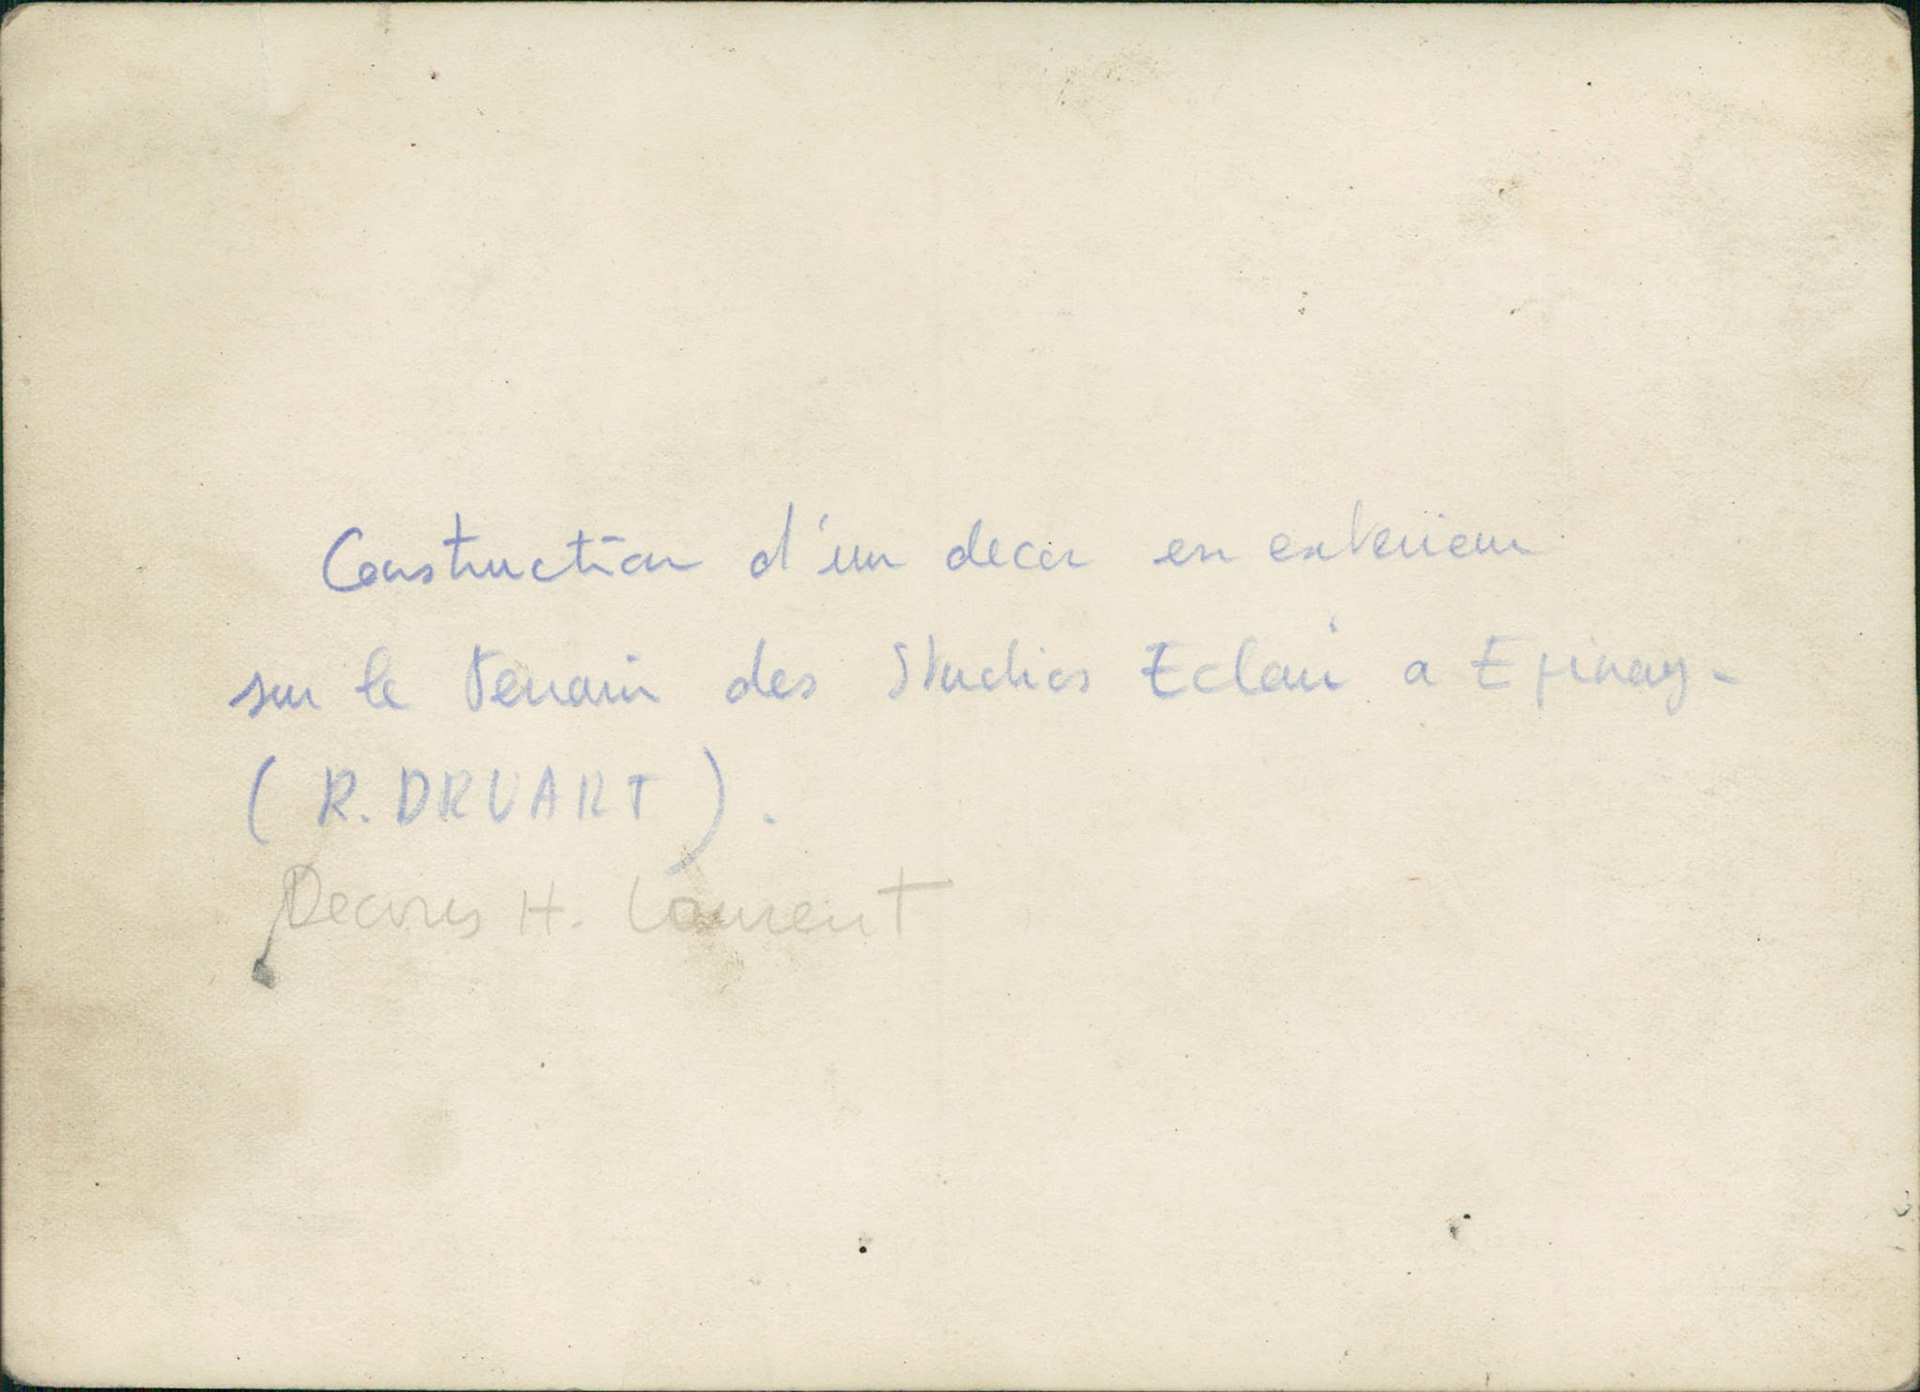 Construction d'un decor en exterieur
sur le terrain des Studios Eclair a Epinay -
( R. DRUART ).
Decores H. Laurent